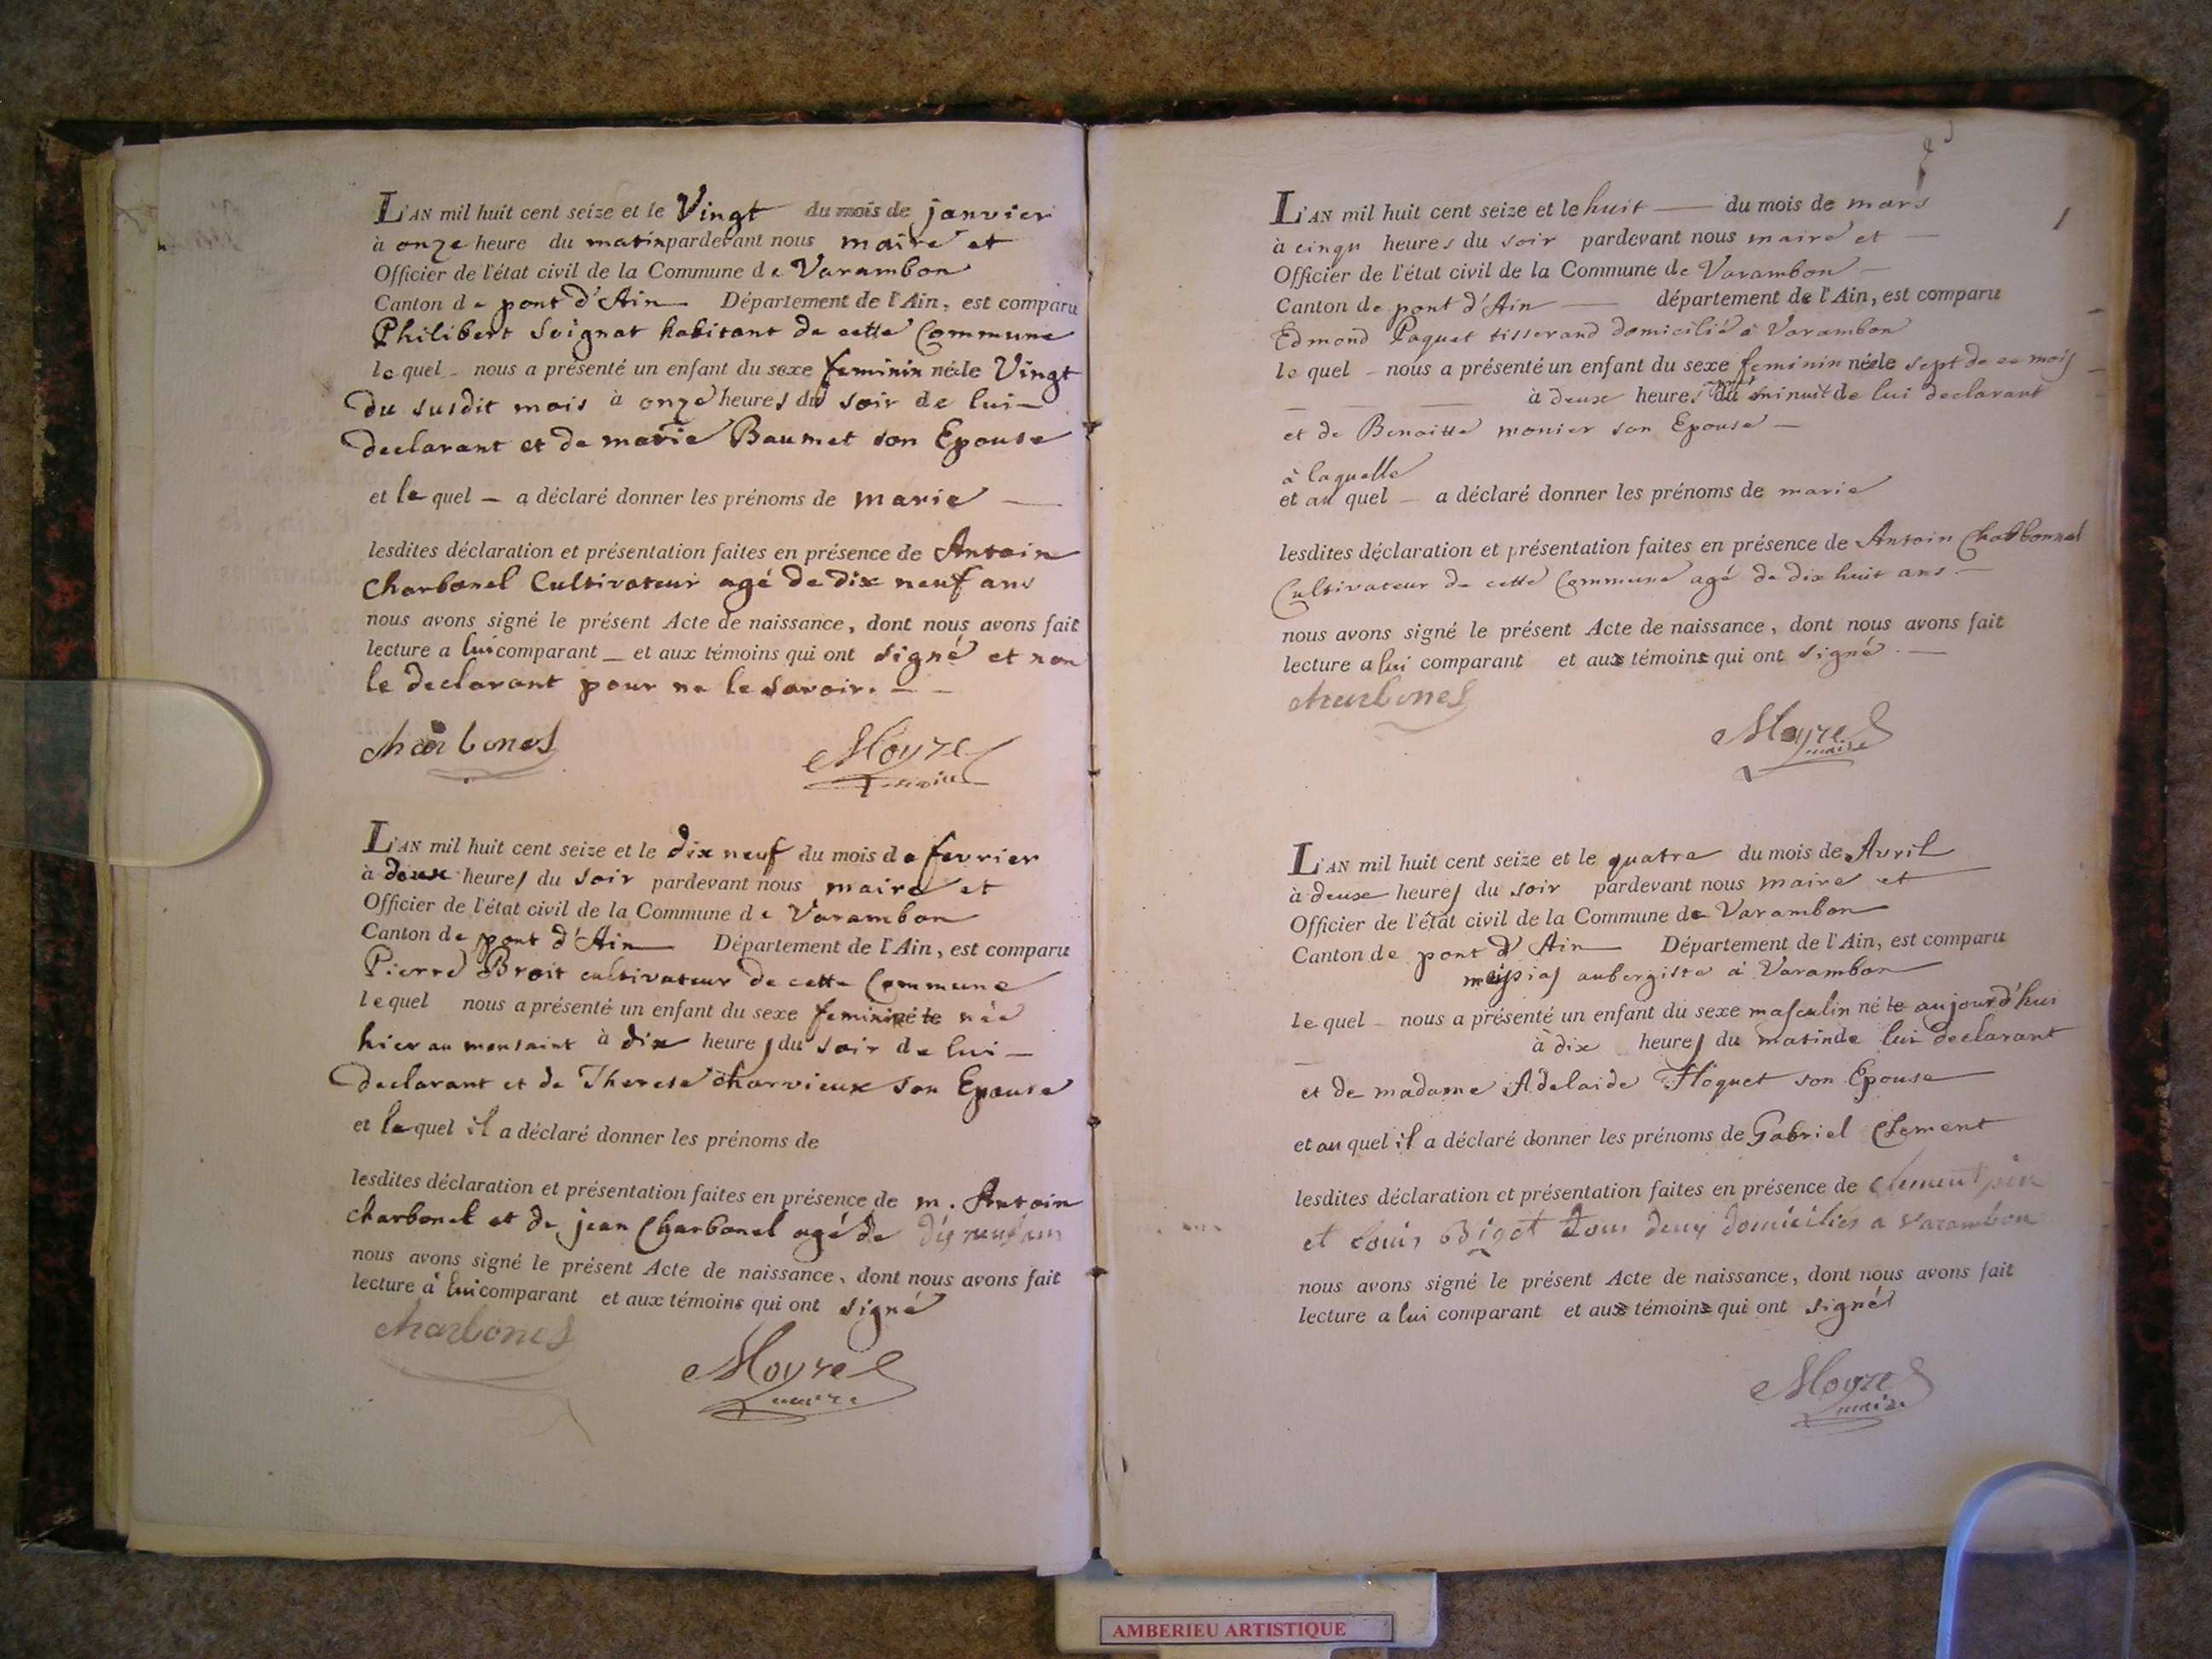 L'AN mil huit cent seize et le Vingt du mois de janvier
à onze heure du matin pardevant nous maire et
Officier de l'état civil de la Commune de Varambon
Canton de pont d'Ain Département de l'Ain, est comparu
Philibert Soignat habitant de cette Commune
le quel - nous a présenté un enfant du sexe feminin née le Vingt
du susdit mois à onze heures du soir de lui -
declarant et de marie Baumet son Epouse
et le quel - a déclaré donner les prénoms de marie
lesdites déclaration et présentation faites en présence de Antoin
Charbonel Cultivateur agé de dix neuf ans
nous avons signé le présent Acte de naissance, dont nous avons fait
lecture a lui comparant - et aux témoins qui ont signé et non
le declarant pour ne le savoir. - -
charbonel Moyret
maire
L'AN mil huit cent seize et le dix neuf du mois de fevrier
à deux heures du soir pardevant nous maire et
Officier de l'état civil de la Commune de Varambon
Canton de pont d'Ain Département de l'Ain, est comparu
Pierre Broit cultivateur de cette Commune
le quel nous a présenté un enfant du sexe feminin né le née
hier au à dix heures du soir de lui -
declarant et de Therese charvieux son Epouse
et le quel il a déclaré donner les prénoms de
lesdites déclaration et présentation faites en présence de m. Antoin
charbonel et de jean Charbonel agé de dix neuf ans
nous avons signé le présent Acte de naissance, dont nous avons fait
lecture à lui comparant et aux témoins qui ont signé
charbonel Moyret
maire
L'AN mil huit cent seize et le huit du mois de mars
à cinqu heures du soir pardevant nous maire et
Officier de l'état civil de la Commune de Varambon
Canton de pont d'Ain département de l'Ain, est comparu
Edmond Paquet tisserand domicilié à Varambon
le quel - nous a présenté un enfant du sexe feminin née le sept de ce mois
à deux heures du minuit de lui declarant
et de Benoitte monier son Epouse -
à laquelle
et au quel - a déclaré donner les prénoms de marie
lesdites déclaration et présentation faites en présence de Antoin Charbonnel
Cultivateur de cette Commune agé de dix huit ans -
nous avons signé le présent Acte de naissance, dont nous avons fait
lecture a lui comparant et aux témoins qui ont signé. -
charbonel
Moyret
maire
L'AN mil huit cent seize et le quatre du mois de Avril
à deux heures du soir pardevant nous maire et
Officier de l'état civil de la Commune de Varambon
Canton de pont d'Ain Département de l'Ain, est comparu
aubergiste à Varambon
le quel - nous a présenté un enfant du sexe masculin né le aujourd'hui
à dix heures du matin de lui declarant
et de madame Adelaide Floquet son Epouse
et au quel il a déclaré donner les prénoms de Gabriel Clement
lesdites déclaration et présentation faites en présence de Clement
et Louis Bigot tous deux domiciliés a varambon
nous avons signé le présent Acte de naissance, dont nous avons fait
lecture a lui comparant et aux témoins qui ont signés
Moyret
maire
AMBERIEU ARTISTIQUE